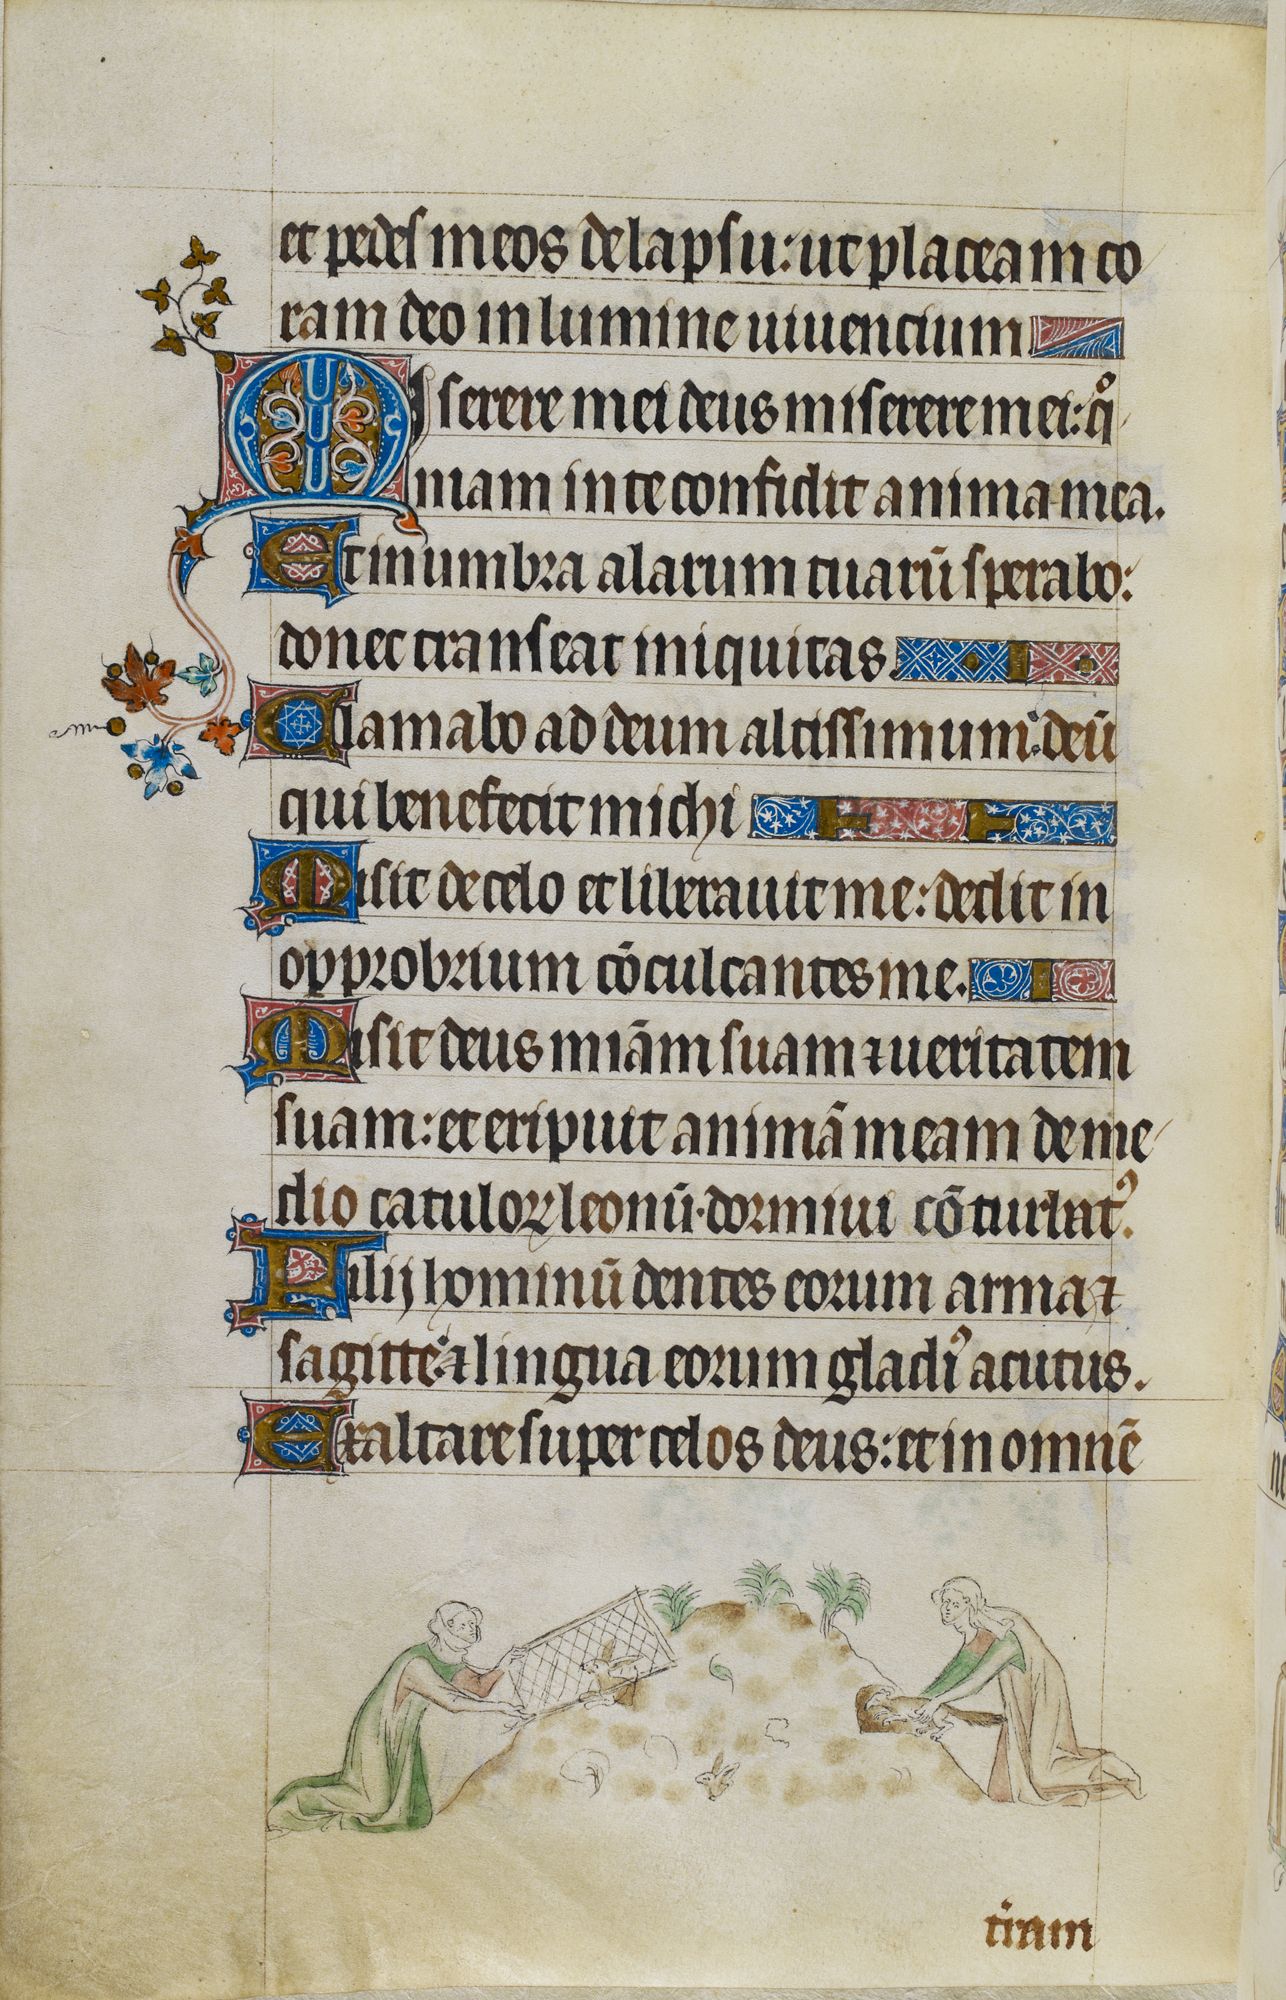 et pedes meos de lapsu: ut placeam co
ram deo in lumine uiuencium
Miserere mei deus miserere mei: qͦ
niam in te confidit anima mea.
Et in umbra alarum tuarū sperabo:
donec transeat iniquitas
Clamabo ad deum altissimum: deū
qui benefecit michi
Misit de celo et liberauit me: dedit in
opprobrium cōculcantes me.
Misit deus miām suam ⁊ ueritatem
suam: et eripuit animā meam de me
dio catuloꝝ leonū. dormiui cōturbatꝰ.
Filij hominū dentes eorum arma ⁊
sagitte: ⁊ lingua eorum gladiꝰ acutus.
Exaltare super celos deus: et in omnē
t̄ram